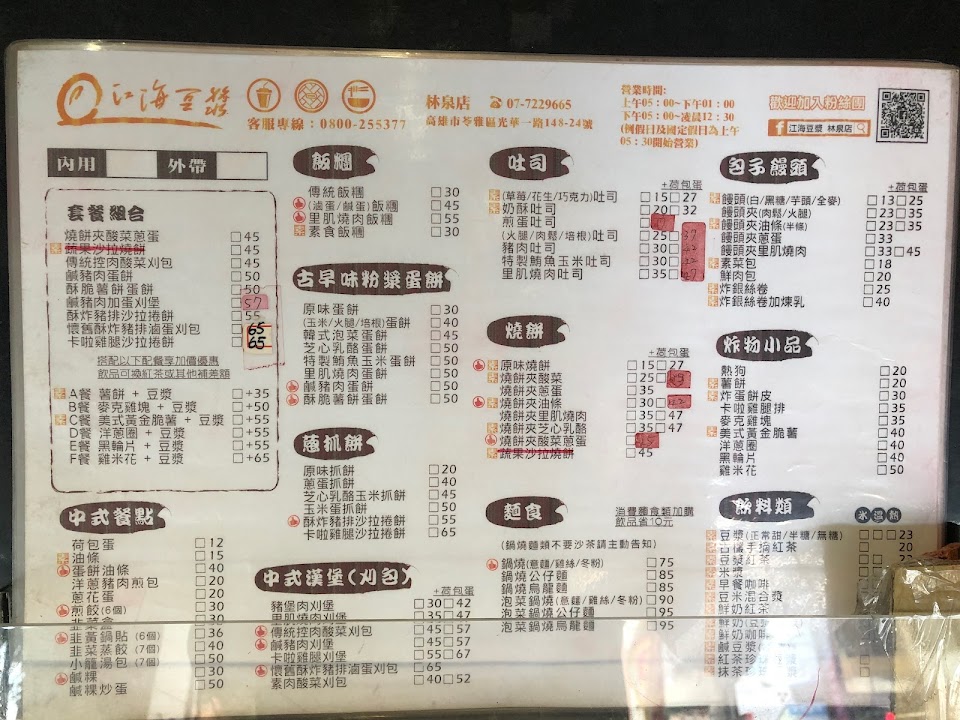 江海豆漿
客服專線：0800-255377
林泉店 ☎ 07-7229665
高雄市苓雅區光華一路148-24號
營業時間:
上午05：00~下午01：00
下午05：00~凌晨12：30
(例假日及國定假日為上午
05：30開始營業)
歡迎加入粉絲團
f 江海豆漿 林泉店
內用 外帶
套餐組合
燒餅夾酸菜蔥蛋 □45
蔬果沙拉燒餅 □45
傳統控肉酸菜刈包 □45
鹹豬肉蛋餅 □50
酥脆薯餅蛋餅 □50
鹹豬肉加蛋刈堡 57
酥炸豬排沙拉捲餅 □55
懷舊酥炸豬排滷蛋刈包 65
卡啦雞腿沙拉捲餅 65
搭配以下配餐享加價優惠
飲品可換紅茶或其他補差額
A餐 薯餅 + 豆漿 □+35
B餐 麥克雞塊 + 豆漿 □+50
C餐 美式黃金脆薯 + 豆漿 □+50
D餐 洋蔥圈 + 豆漿 □+50
E餐 黑輪片 + 豆漿 □+50
F餐 雞米花 + 豆漿 □+65
中式餐點
荷包蛋 □12
油條 □15
蛋餅油條 □40
洋蔥豬肉煎包 □20
蔥花蛋 □20
煎餃(6個) □30
韭菜盒 □30
韭黃鍋貼 (6個) □36
韭菜蒸餃 (7個) □40
小籠湯包 (7個) □50
鹹粿 □30
鹹粿炒蛋 □50
飯糰
傳統飯糰 □30
(滷蛋/鹹蛋)飯糰 □45
里肌燒肉飯糰 □55
素食飯糰 □30
古早味粉漿蛋餅
原味蛋餅 □30
(玉米/火腿/培根)蛋餅 □40
韓式泡菜蛋餅 □45
芝心乳酪蛋餅 □50
特製鮪魚玉米蛋餅 □50
里肌燒肉蛋餅 □50
鹹豬肉蛋餅 □50
酥脆薯餅蛋餅 □50
蔥抓餅
原味抓餅 □20
蔥蛋抓餅 □40
芝心乳酪玉米抓餅 □45
玉米蛋抓餅 □50
酥炸豬排沙拉捲餅 □55
卡啦雞腿沙拉捲餅 □65
中式漢堡(刈包)
+荷包蛋
豬堡肉刈堡 □30□42
里肌燒肉刈堡 □35□47
傳統控肉酸菜刈包 □45□57
鹹豬肉刈堡 □45□57
卡啦雞腿刈堡 □55□67
懷舊酥炸豬排滷蛋刈包 □65
素肉酸菜刈包 □40□52
吐司
+荷包蛋
(草莓/花生/巧克力)吐司 □15□27
奶酥吐司 □20□32
煎蛋吐司
(火腿/肉鬆/培根)吐司 □25 37
豬肉吐司 □30 42
特製鮪魚玉米吐司 □30 42
里肌燒肉吐司 □35 47
燒餅
+荷包蛋
原味燒餅 □15□27
燒餅夾酸菜 □25
燒餅夾蔥蛋 □35
燒餅夾油條 □30 42
燒餅夾里肌燒肉 □35□47
燒餅夾芝心乳酪 □35□47
燒餅夾酸菜蔥蛋 45
蔬果沙拉燒餅 □45
麵食
消費麵食類加購
飲品省10元
(鍋燒麵類不要沙茶請主動告知)
鍋燒(意麵/雞絲/冬粉) □75
鍋燒公仔麵 □85
鍋燒烏龍麵 □85
泡菜鍋燒(意麵/雞絲/冬粉) □90
泡菜鍋燒公仔麵 □95
泡菜鍋燒烏龍麵 □95
包子饅頭
+荷包蛋
饅頭(白/黑糖/芋頭/全麥) □13□25
饅頭夾(肉鬆/火腿) □23□35
饅頭夾油條(半條) □23□35
饅頭夾蔥蛋 □33
饅頭夾里肌燒肉 □33□45
素菜包 □18
鮮肉包 □20
炸銀絲卷 □25
炸銀絲卷加煉乳 □40
炸物小品
熱狗 □20
薯餅 □20
炸蛋餅皮 □30
卡啦雞腿排 □35
麥克雞塊 □35
美式黃金脆薯 □40
洋蔥圈 □40
黑輪片 □40
雞米花 □50
飲料類 冰 溫 熱
豆漿(正常甜/半糖/無糖) □□□23
古樸手摘紅茶 □ 20
米漿
早餐咖啡
豆米混合漿
鮮奶紅茶
鮮奶咖啡